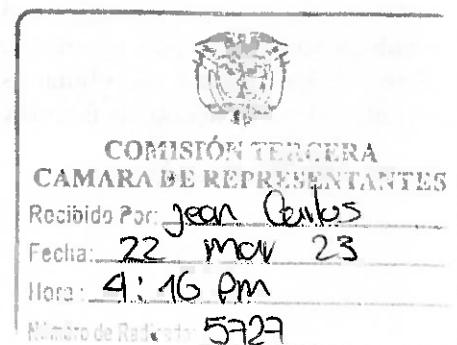 COMISIÓN TERCERA
CAMARA DE REPRESENTANTES
Recibido Por: Jean Carlos
Fecha: 22 mar 23
Hora: 4:16 pm
Número de Radicado: 5727